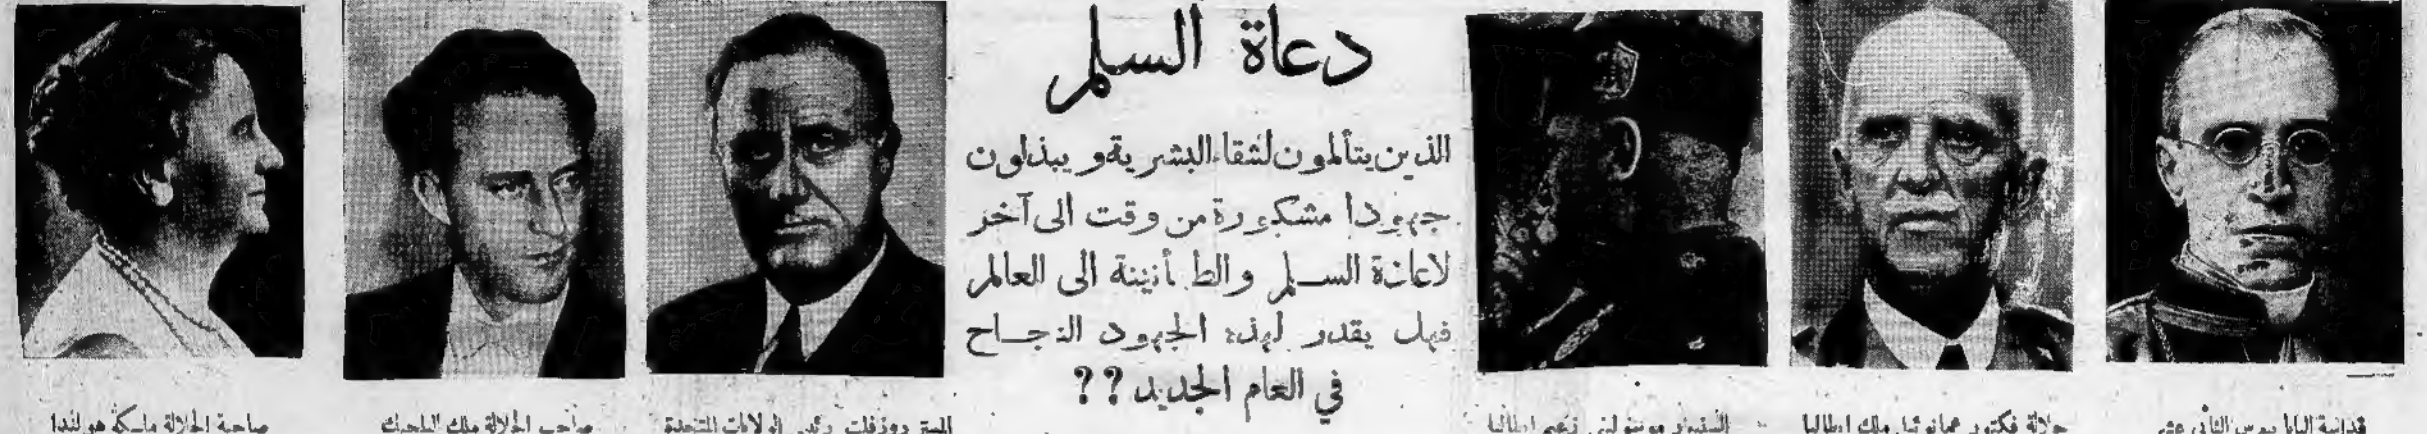 دعاة السلم
الذين يتألمون لشقاء البشرية ويبذلون
جهودا مشكورة من وقت الى آخر
لاعادة السلم والطمأنينة الى العالم
فهل يقدر لهذه الجهود النجاح
في العام الجديد ؟؟
قداسة البابا بيوس الثاني عشر
جلالة فكتور عمانوئيل ملك ايطاليا
السنيور موسوليني زعيم ايطاليا
المستر روزفلت رئيس الولايات المتحدة
صاحب الجلالة ملك البلجيك
صاحبة الجلالة ملكة هولندا